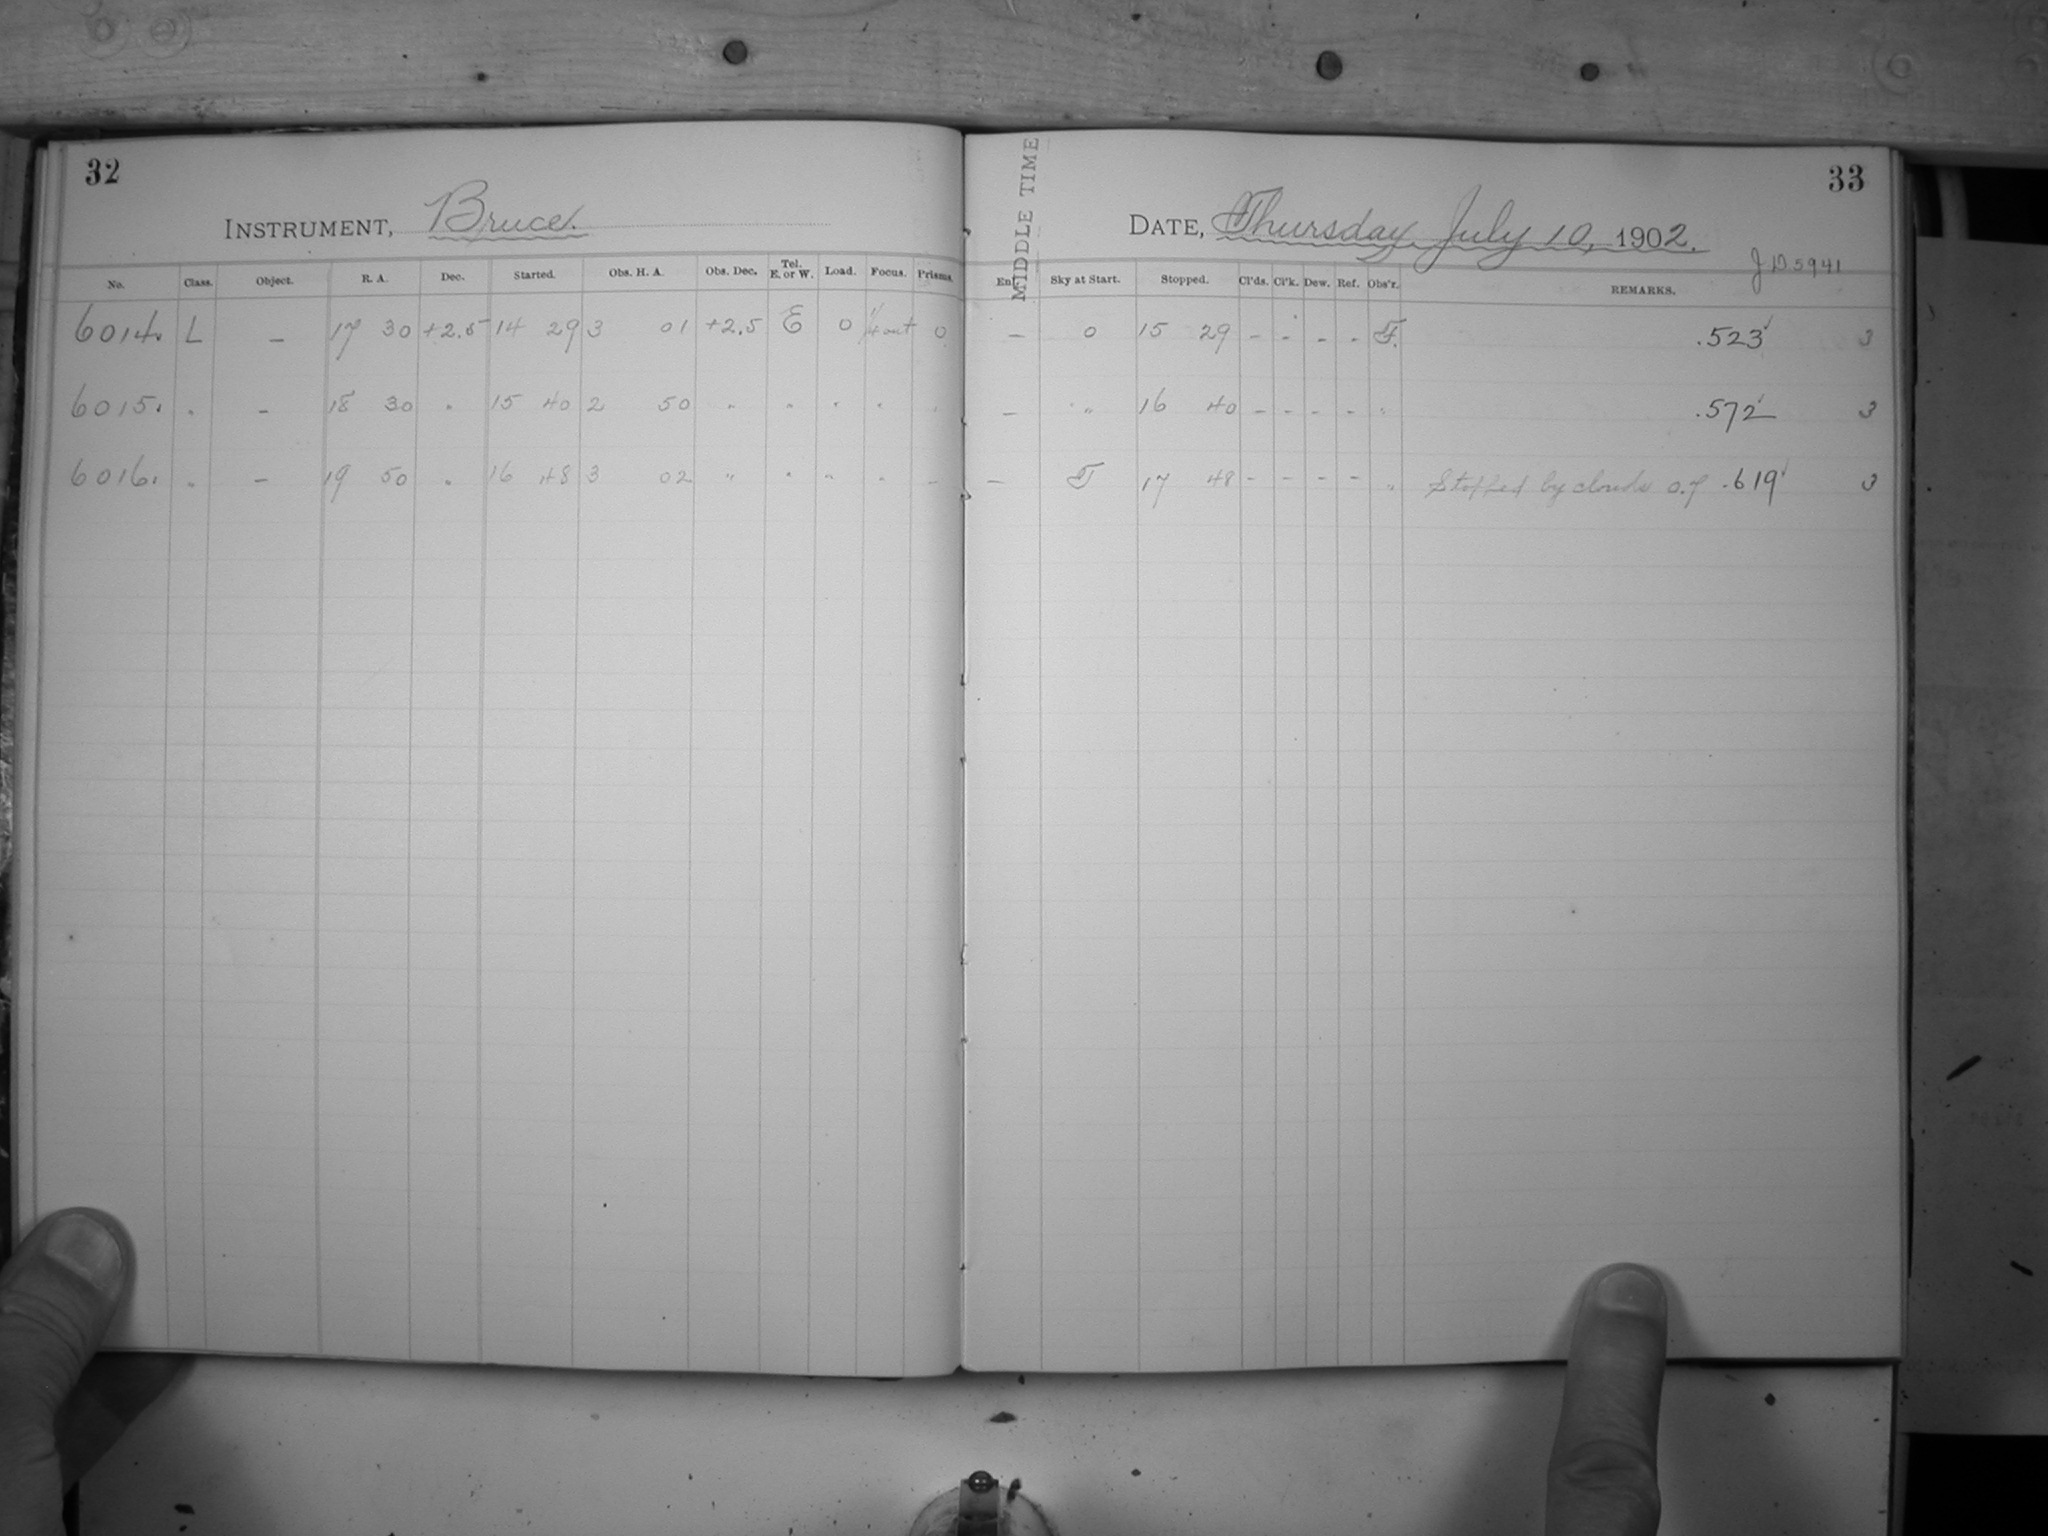 32
INSTRUMENT, Bruce.
No. Class. Object. R. A. Dec. Started. Obs. H. A. Obs. Dec. Tel. E. or W. Load. Focus. Prisms.
6014. L – 17 30 +2.5 14 29 3 01 +2.5 E 0 out 0
6015. " – 18 30 " 15 40 2 50 " " " " "
6016. " – 19 50 " 16 48 3 02 " " " " –
33
MIDDLE TIME
DATE, Thursday, July 10, 1902.
JD 5941
Sky at Start. Stopped. Cl'ds. Cl'k. Dew. Ref. Obs'r. REMARKS.
– 0 15 29 – – – – F. .523 3
– " 16 40 – – – – " .572 3
– F 17 48 – – – – " Stopped by clouds 0.7 .619 3